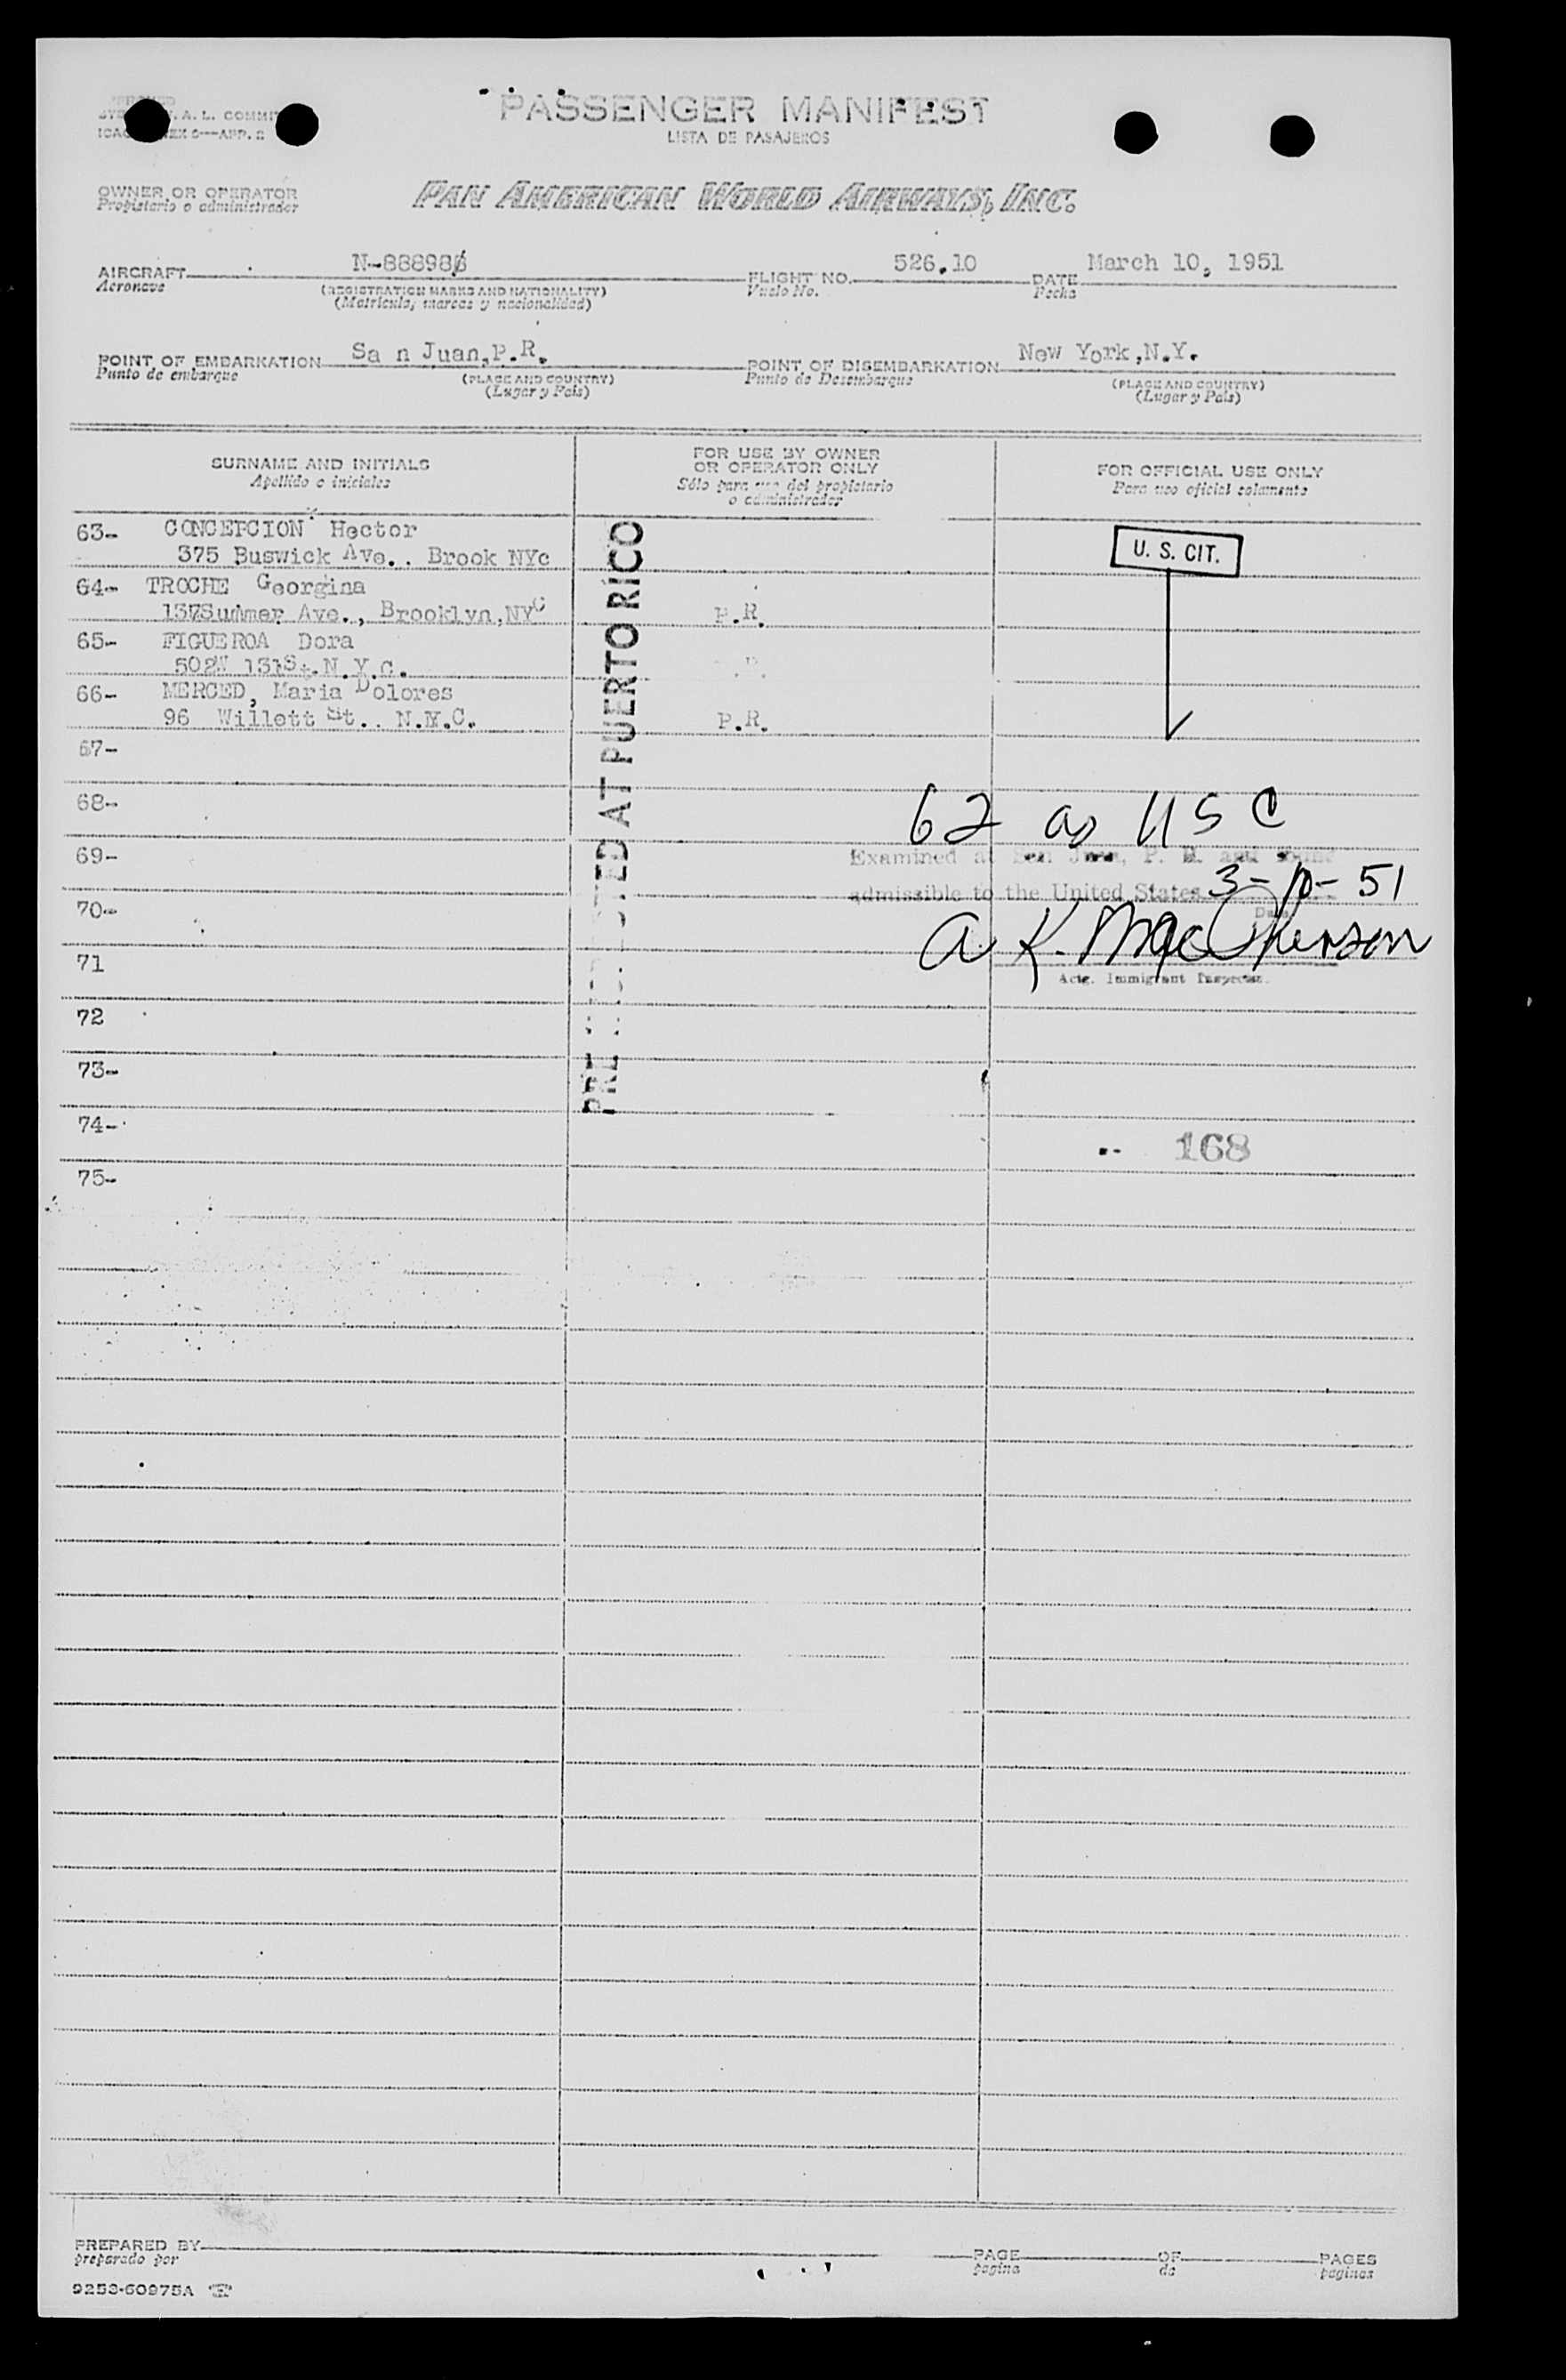 A. L. COMMIT
APP. 2
PASSENGER MANIFEST
LISTA DE PASAJEROS
OWNER OR OPERATOR
Propietario o administrador
PAN AMERICAN WORLD AIRWAYS, INC.
AIRCRAFT N-88898 FLIGHT NO. 526.10 DATE March 10, 1951
Aeronave (REGISTRATION MARKS AND NATIONALITY) Vuelo No. Fecha
(Matricula, marcas y nacionalidad)
POINT OF EMBARKATION Sa n Juan,P.R. POINT OF DISEMBARKATION New York,N.Y.
Punto de embarque (PLACE AND COUNTRY) Punto de Desembarque (PLACE AND COUNTRY)
(Lugar y País) (Lugar y País)
SURNAME AND INITIALS
Apellido e iniciales
FOR USE BY OWNER
OR OPERATOR ONLY
Sólo para uso del propietario
o administrador
FOR OFFICIAL USE ONLY
Para uso oficial solamente
63- CONCEPCION Hector
375 Buswick Ave.. Brook NYc
U. S. CIT.
64- TROCHE Georgina
137Summer Ave., Brooklyn,NYC P.R.
65- FIGUEROA Dora
502W 131St.N.Y.C.
66- MERCED, Maria Dolores
96 Willett St.. N.Y.C. P.R.
AT PUERTO RICO
67-
68-
62 as USC
69-
Examined at San Juan, P. R. and found
admissible to the United States 3-10-51
Date
70-
A. K. MacPherson
71
Actg. Immigrant Inspector.
72
73-
74-
168
75-
PREPARED BY PAGE OF PAGES
preparado por pagina de paginas
9253-60975A